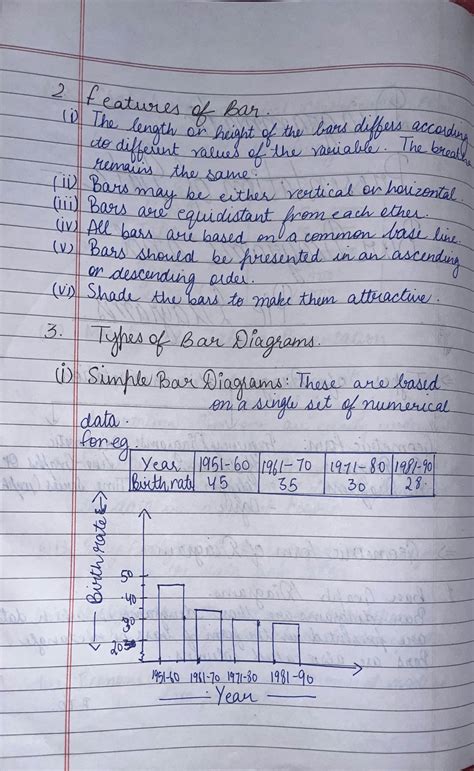 2. Features of Bar.
(i) The length or height of the bars differs according
to different values of the variable. The breath
remains the same.
(ii) Bars may be either vertical or horizontal.
(iii) Bars are equidistant from each other.
(iv) All bars are based on a common base line.
(v) Bars should be presented in an ascending
or descending order.
(vi) Shade the bars to make them attractive.
3. Types of Bar Diagrams.
(i) Simple Bar Diagrams: These are based
on a single set of numerical
data.
for eg.
Year 1951-60 1961-70 1971-80 1981-90
Birth rate 45 35 30 28
Birth rate
50
40
30
20
1951-60 1961-70 1971-80 1981-90
Year